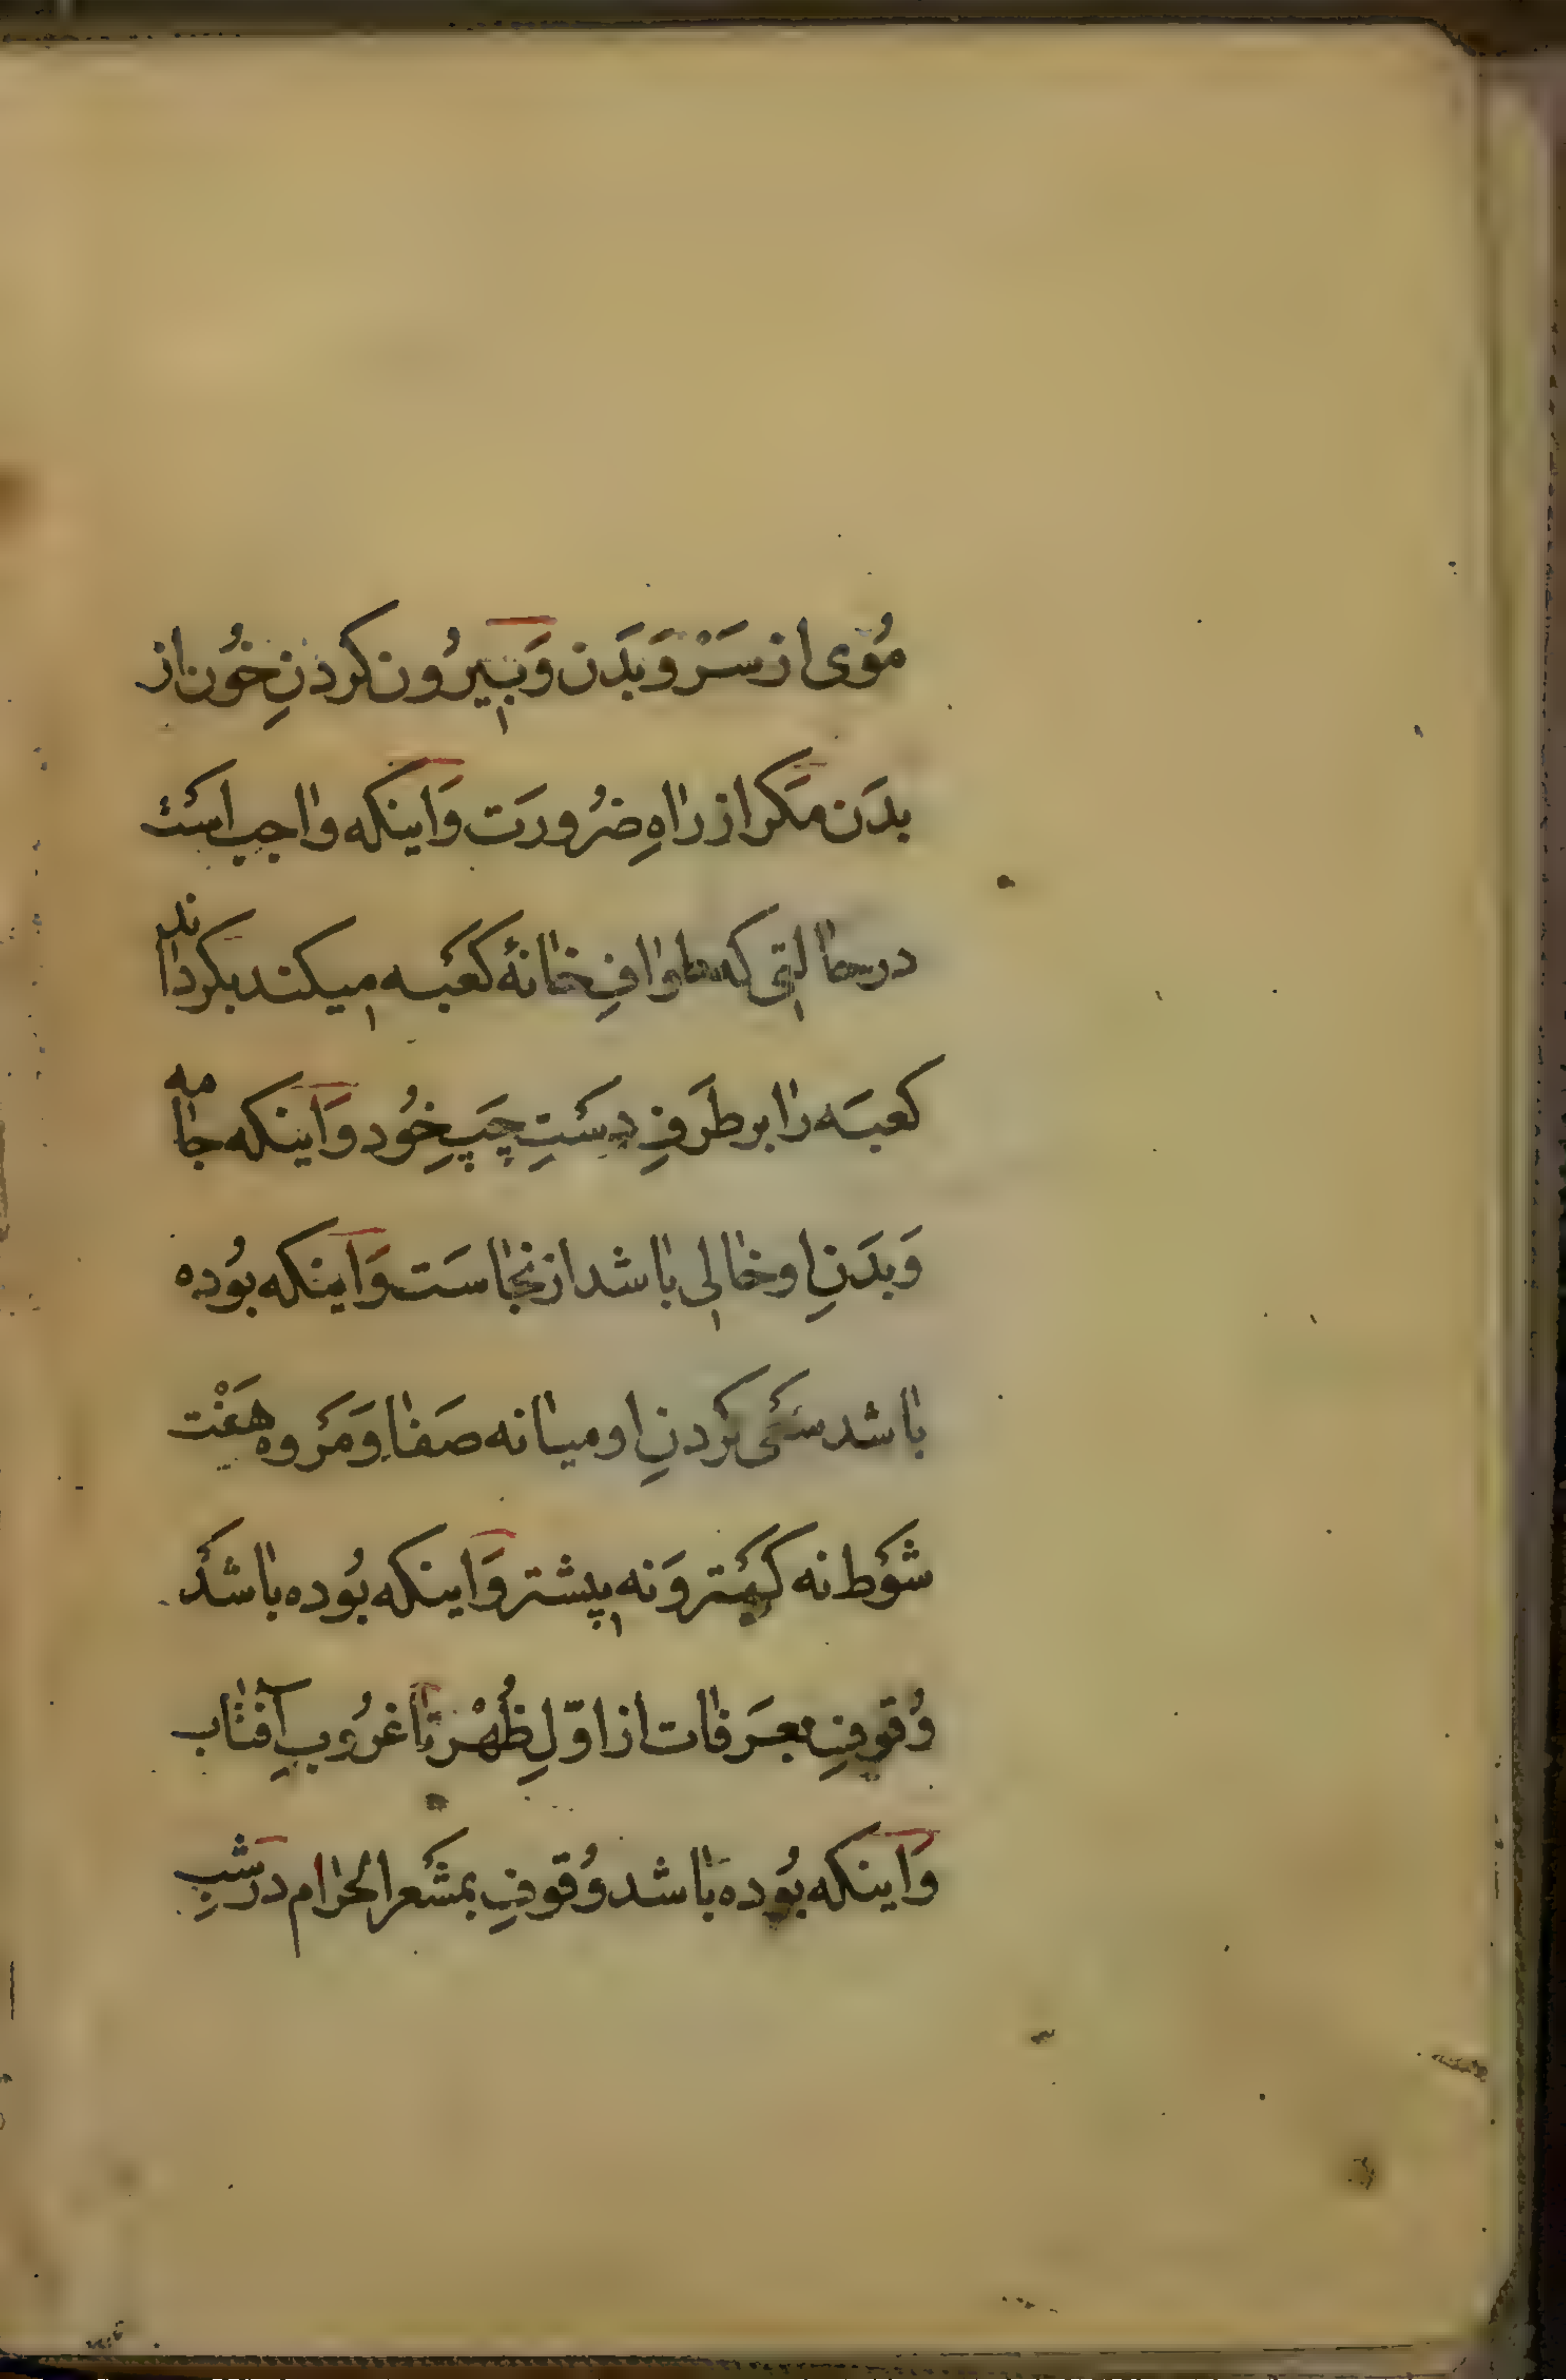 مُوی از سَرْ وَ بَدَن وَ بیرُون کردنِ خُون از
بدَن مَکر از راهِ ضرُورَت وَاینکه واجب اسَت
درحالتی که طوافِ خانهٔ کعْبه میکند بکرداند
کعبَه را بر طرَفِ دسَتِ چَپِ خُود وَاینکه جامه
وَ بدَنِ او خالی باشد از نجاسَت وَاینکه بوُده
باشد سَعْی کردنِ او میانه صَفا وَ مَرْوه هَفْت
شَوْط نه کمَتر وَ نه پیشتر وَاینکه بوُده باشدَ
وُقوفِ بعرَفات از اوّلِ ظُهْر تا غرُوبِ آفتاب
وَاینکه بوُده باشد وُقوفِ بمشَعر الحرام درَ شبِ